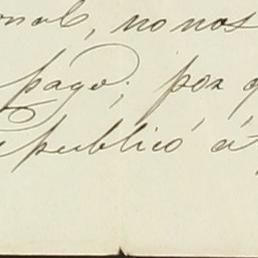 onal, no nos
pago; por q
publicó á